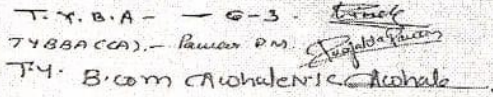 T.Y.B.A - - G-3.
TYBBA (CA). - Pawar P.M.
T.Y. B.com Awhale N.K Awhale